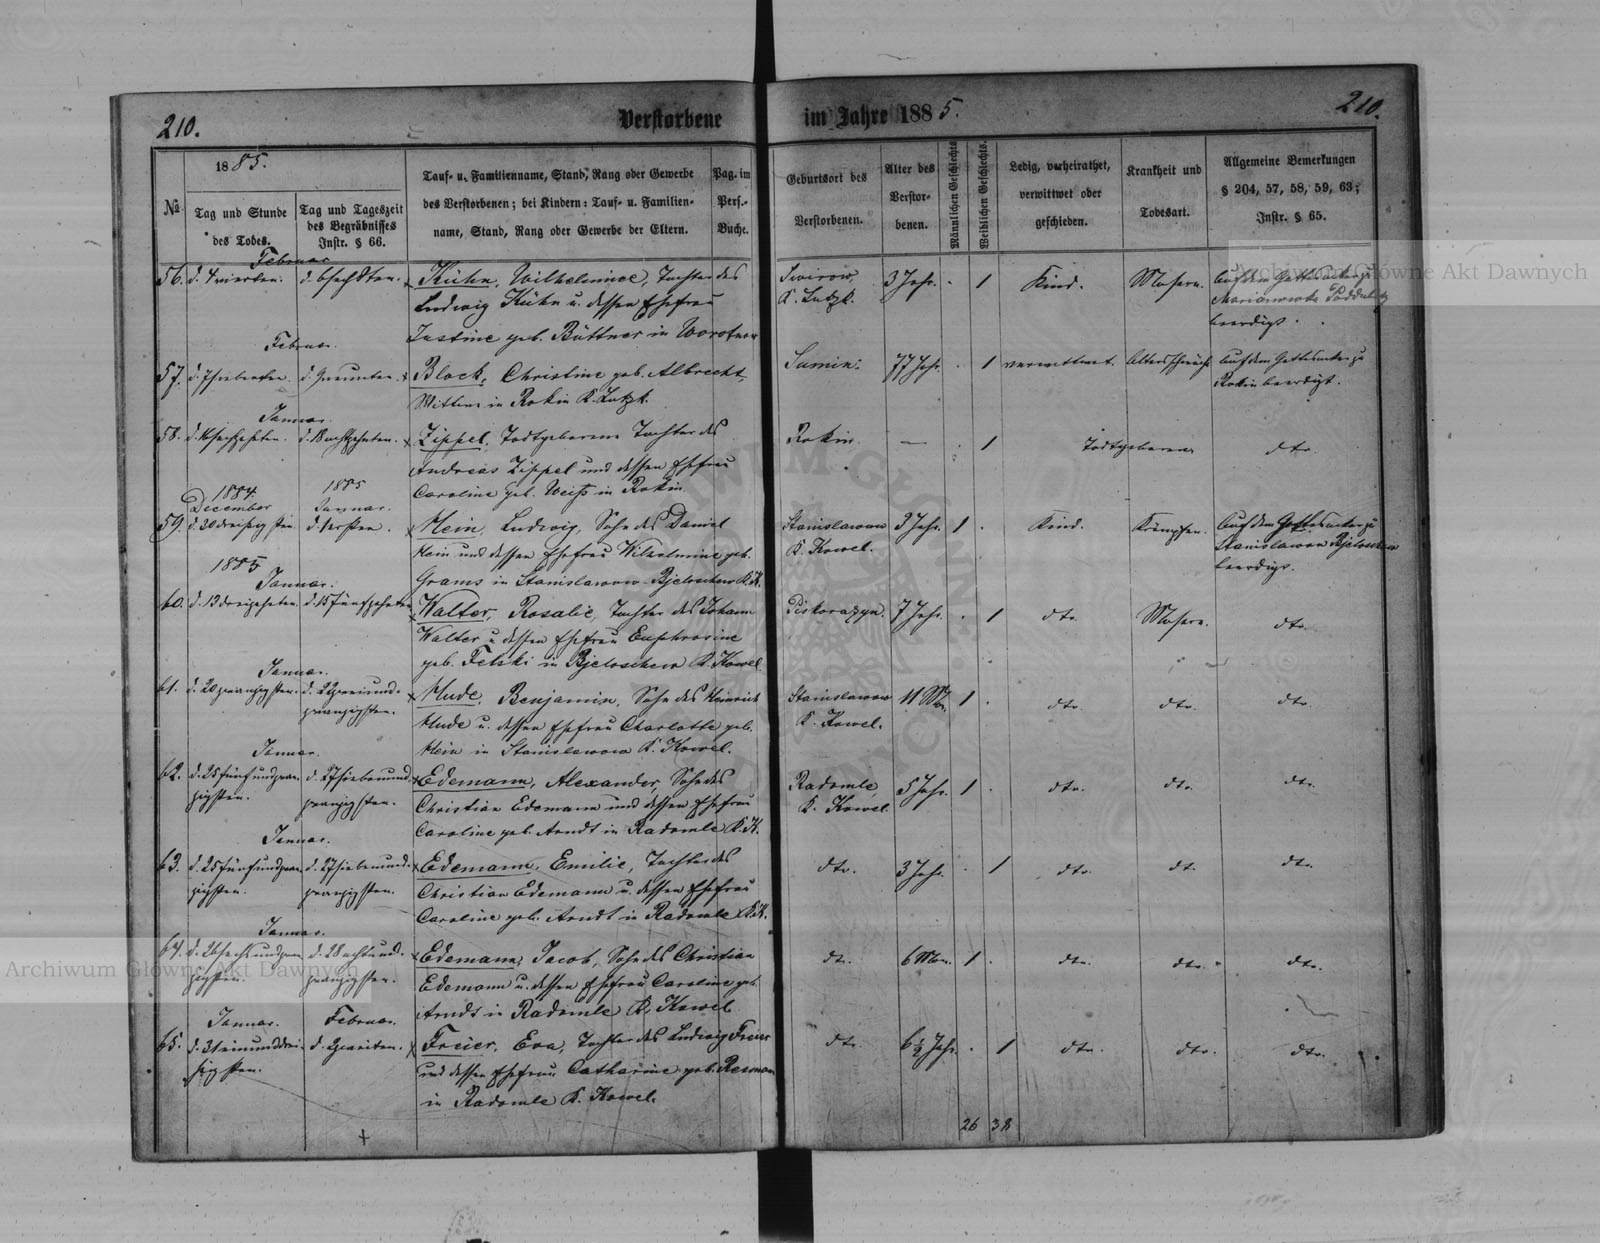 210.
Verstorbene im Jahre 1885.
210.
№
1885.
Tag und Stunde des Todes.
Tag und Tageszeit des Begräbnisses Instr. § 66.
Tauf- u. Familienname, Stand, Rang oder Gewerbe
des Verstorbenen; bei Kindern: Tauf- u. Familien-
name, Stand, Rang oder Gewerbe der Eltern.
Pag. im Pers.-Buche.
Geburtsort des Verstorbenen.
Alter des Verstor-benen.
Männlichen Geschlechts
Weiblichen Geschlechts.
Ledig, verheirathet, verwittwet oder geschieden.
Krankheit und Todesart.
Allgemeine Bemerkungen § 204, 57, 58, 59, 63; Instr. § 65.
Februar
56. d. 4 vierten. d. 6 sechsten. Kühn, Wilhelmine, Tochter des 3 Jahr. 1 Kind. Masern. Auf dem Gottesacker zu
Ludwig Kühn u. dessen Ehefrau K. Lutzk.
Justine geb. Büttner in beerdigt.
Februar.
57. d. 7 siebenten. d. 9 neunten. Block, Christine geb. Albrecht, 77 Jahr. 1 verwittwet. Altersschwäche Auf dem Gottesacker zu
Wittwe in Rokin K. Lutzk. Rokin beerdigt.
Januar.
58. d. 16 sechzehnten. d. 18 achtzehnten. Zippel, Todtgeborene Tochter des Rokin — 1 Todtgeboren dto.
Andreas Zippel und dessen Ehefrau
Caroline geb. Weiss in Rokin
1884. December 1885 Januar.
59. d. 30 dreißigsten d. 1 ersten. Hein, Ludwig, Sohn des Daniel Stanislawow 3 Jahr. 1 Kind. Krämpfen. Auf dem Gottesacker zu
Hein und dessen Ehefrau Wilhelmine geb. K. Kowel. Stanislawow
Grams in Stanislawow K. K. beerdigt.
1885
Januar.
60. d. 13 dreizehnten. d. 15 fünfzehnten Walter, Rosalie, Tochter des Johann 7 Jahr. 1 dto. Masern. dto.
Walter u. dessen Ehefrau Euphrosine
geb. Felski in K. Kowel.
Januar.
61. d. 20 zwanzigsten. d. 22 zweiund- Hude, Benjamin, Sohn des Heinrich Stanislawow 11 Mon. 1 dto. dto. dto.
zwanzigsten. Hude u. dessen Ehefrau Charlotte geb. K. Kowel.
Hein in Stanislawow K. Kowel.
Januar.
62. d. 25 fünfundzwan- d. 27 siebenund- Edemann, Alexander, Sohn des Radomle 5 Jahr. 1 dto. dto. dto.
zigsten. zwanzigsten. Christian Edemann und dessen Ehefrau K. Kowel
Caroline geb. Arndt in Radomle K. K.
Januar.
63. d. 25 fünfundzwan- d. 27 siebenund- Edemann, Emilie, Tochter des dto. 3 Jahr. 1 dto. dt. dto.
zigsten. zwanzigsten. Christian Edemann u. dessen Ehefrau
Caroline geb. Arndt in Radomle K. K.
Januar.
64. d. 26 sechsundzwan- d. 28 achtund- Edemann, Jacob, Sohn des Christian dto. 6 Mon. 1 dto. dto. dto.
zigsten. zwanzigsten. Edemann u. dessen Ehefrau Caroline geb.
Arndt in Radomle K. Kowel
Januar. Februar.
65. d. 31 einunddrei- d. 2 zweiten. Freier, Eva, Tochter des Ludwig Freier dto. 6½ Jahr. 1 dto. dto. dto.
ßigsten. und dessen Ehefrau Catharine geb.
in Radomle K. Kowel.
26 38
Archiwum Główne Akt Dawnych
Archiwum Główne Akt Dawnych